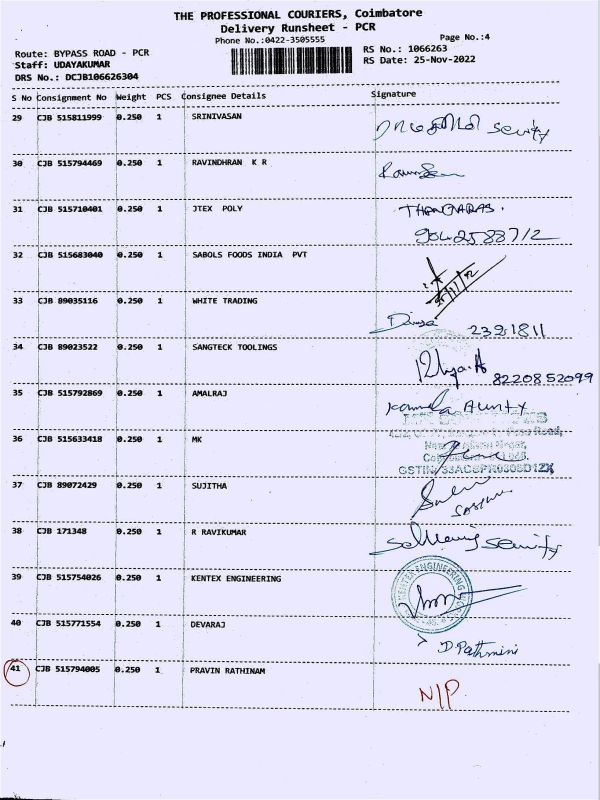 THE PROFESSIONAL COURIERS, Coimbatore
Delivery Runsheet - PCR
Phone No.:0422-3505555
Page No.:4
Route: BYPASS ROAD - PCR
RS No.: 1066263
Staff: UDAYAKUMAR
RS Date: 25-Nov-2022
DRS No.: DCJB106626304
S No Consignment No Weight PCS Consignee Details Signature
29 CJB 515811999 0.250 1 SRINIVASAN
30 CJB 515794469 0.250 1 RAVINDHRAN K R
31 CJB 515710401 0.250 1 JTEX POLY THANGARAS.
9042588712
32 CJB 515683040 0.250 1 SABOLS FOODS INDIA PVT
33 CJB 89035116 0.250 1 WHITE TRADING
2321811
34 CJB 89023522 0.250 1 SANGTECK TOOLINGS
8220852099
35 CJB 515792869 0.250 1 AMALRAJ Kamala Aunty
36 CJB 515633418 0.250 1 MK
37 CJB 89072429 0.250 1 SUJITHA
38 CJB 171348 0.250 1 R RAVIKUMAR
39 CJB 515754026 0.250 1 KENTEX ENGINEERING
40 CJB 515771554 0.250 1 DEVARAJ
D Pathmini
41 CJB 515794005 0.250 1 PRAVIN RATHINAM
N/P